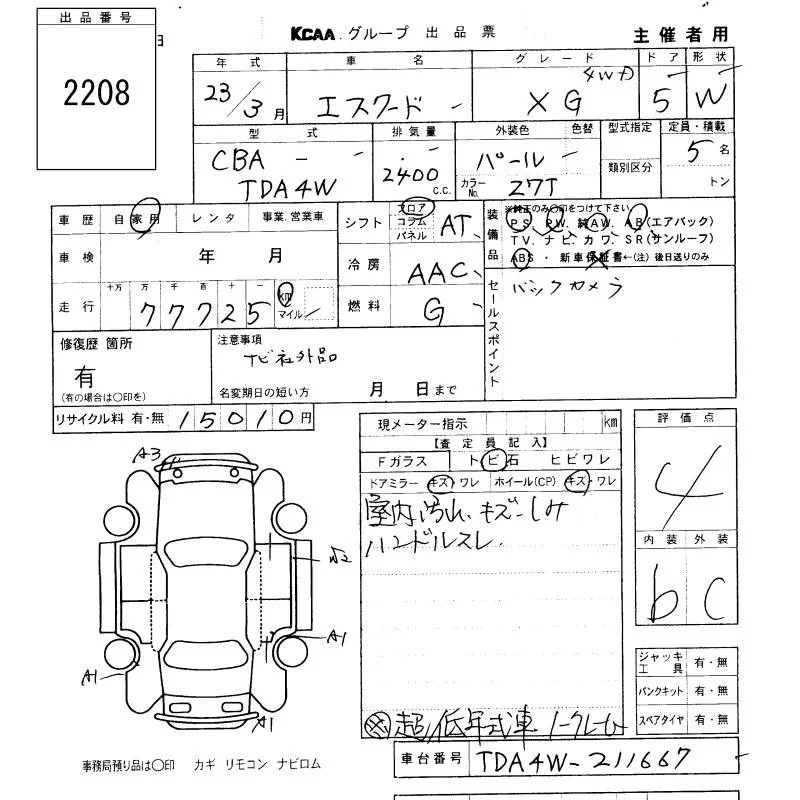 出品番号
2208
KCAA グループ 出品票 主催者用
年式 車名 グレード ドア 形状
23/3月 エスクード - XG 4WD 5 W
型式 排気量 外装色 色替 型式指定 定員・積載
CBA - - 2400 c.c. パール - 類別区分 5名
TDA4W カラーNo. Z7T トン
車歴 自家用 レンタ 事業.営業車
シフト フロア コラム パネル AT
装備品 ※純正のみ○印をつけて下さい
PS. PW. 純AW. AB(エアバック)
TV. ナビ. カワ. SR(サンルーフ)
ABS ・ 新車保証書←(注)後日送りのみ
車検 年 月
冷房 AAC
セールスポイント バックカメラ
走行 十万 万 千 百 十 一
77725 km マイル
燃料 G
修復歴 箇所
有
(有の場合は○印を)
注意事項
ナビ社外品
名変期日の短い方 月 日まで
リサイクル料 有・無 15010円
現メーター指示 km
【査定員記入】
Fガラス トビ石 ヒビワレ
ドアミラー キズ・ワレ ホイール(CP) キズ・ワレ
室内汚れ、キズ・しみ
ハンドルスレ
超低年式車ノークレーム
評価点
4
内装 外装
b C
A3
A1
A1
A1
ジャッキ工具 有・無
パンクキット 有・無
スペアタイヤ 有・無
車台番号 TDA4W-211667
事務局預り品は○印 カギ リモコン ナビロム